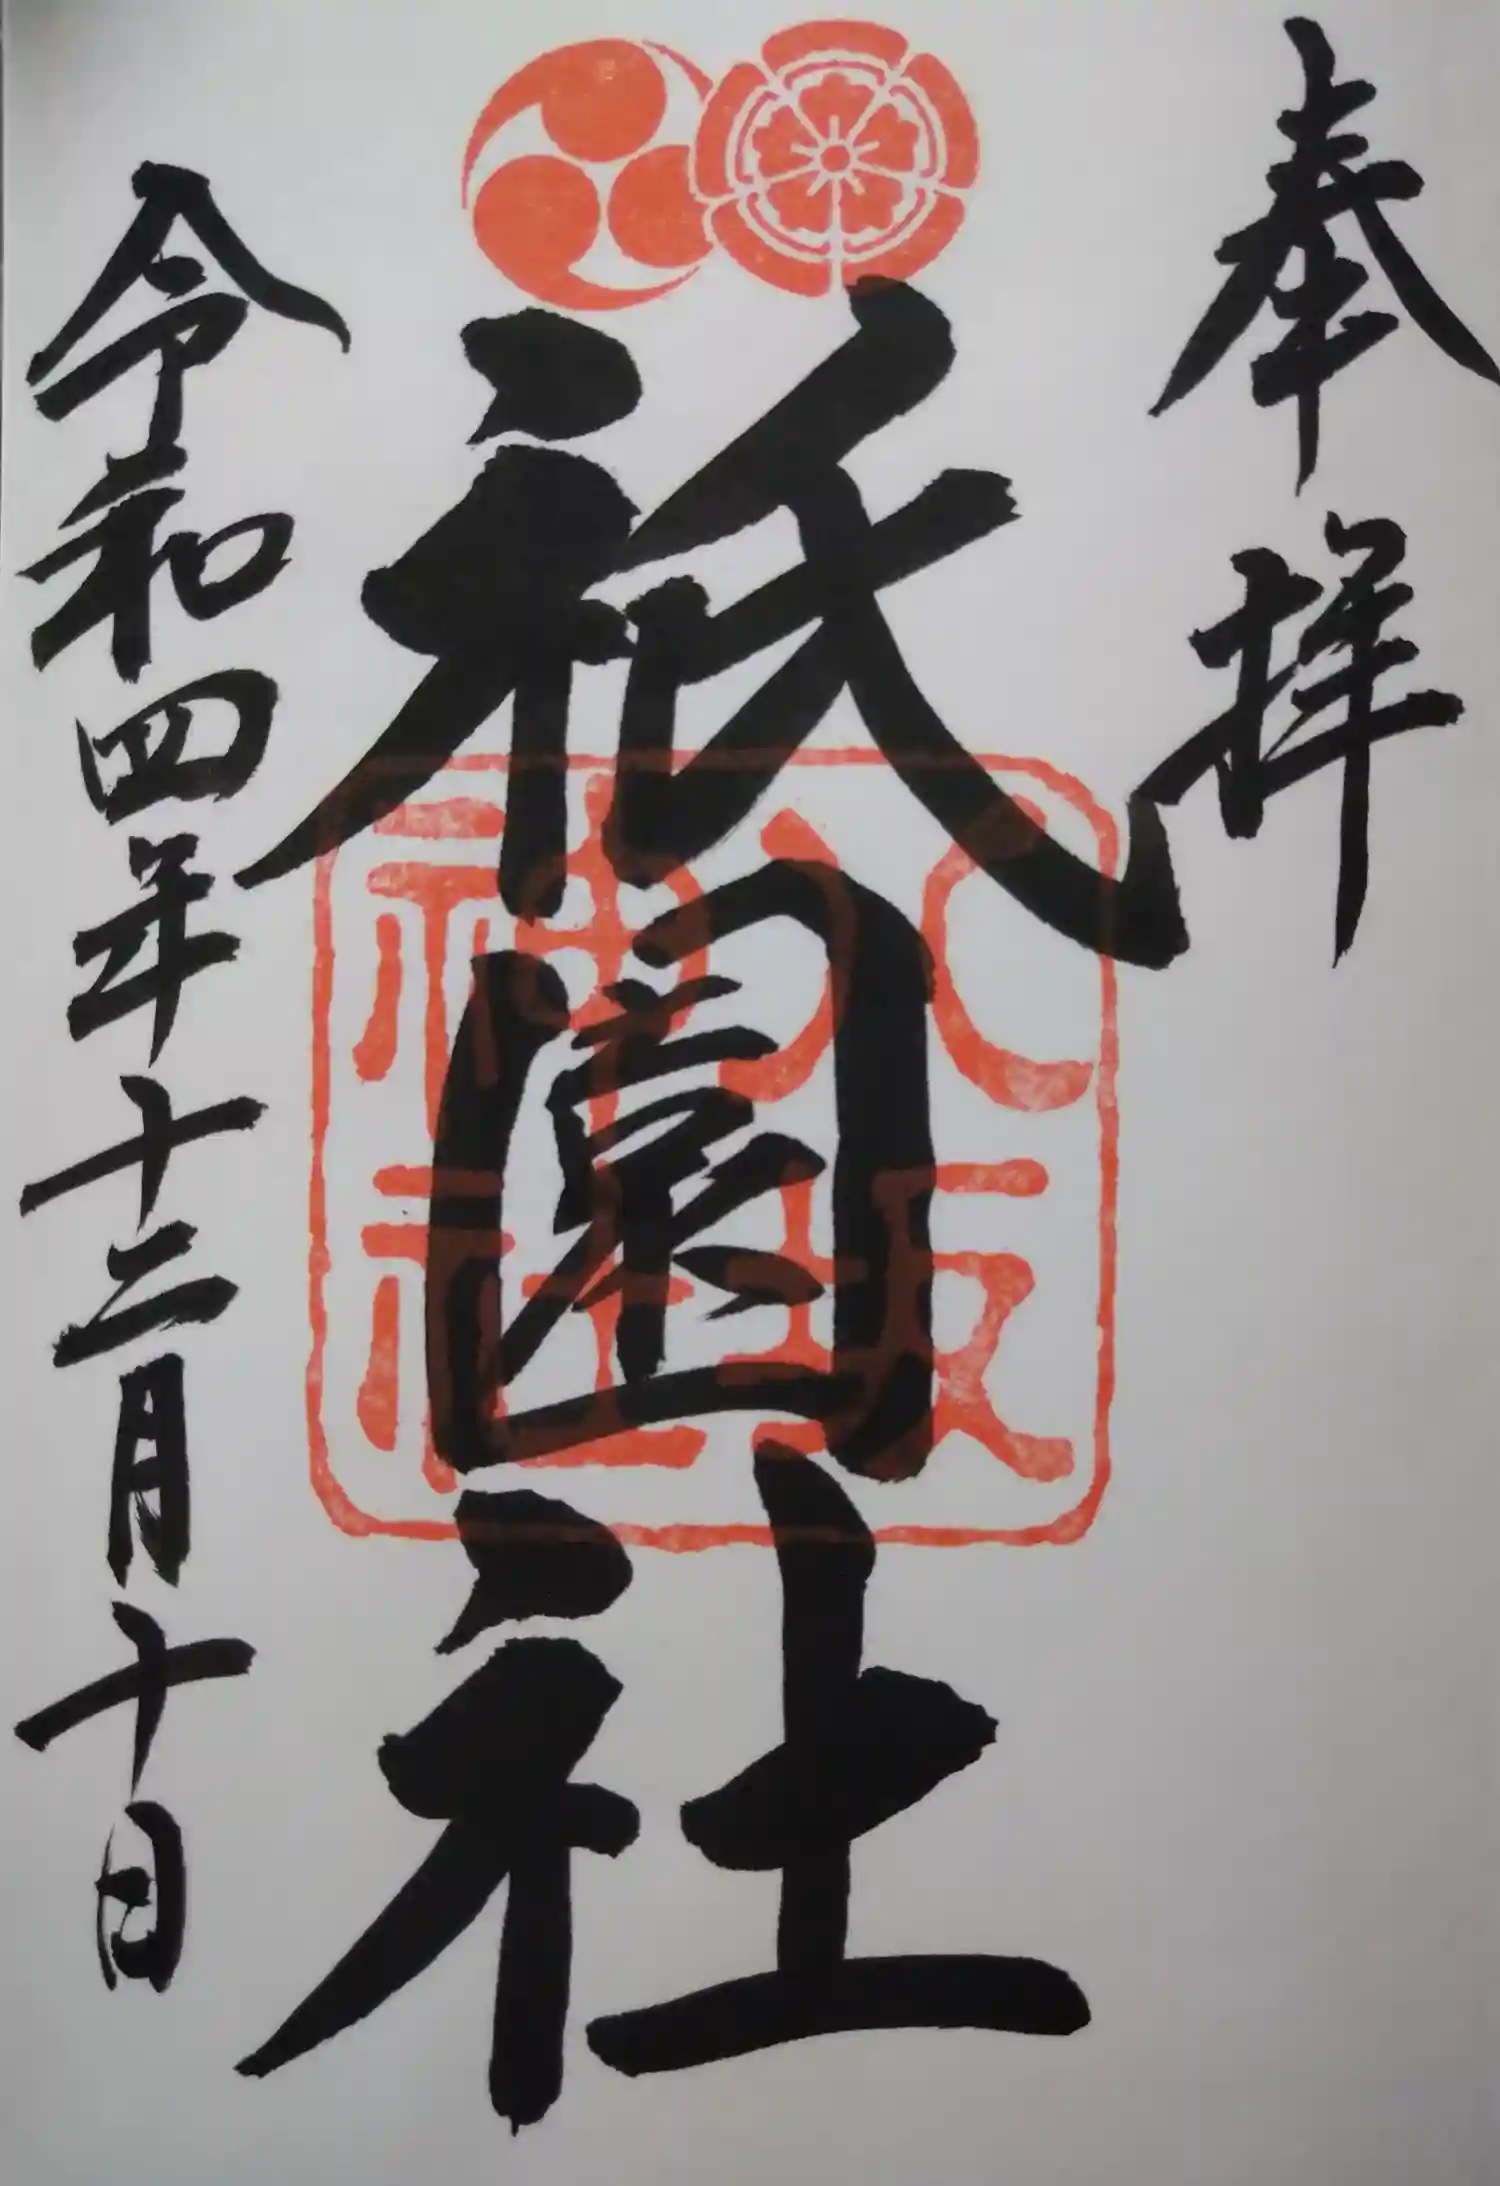 奉拝
祇園社
八坂
神社
令和四年十二月十日